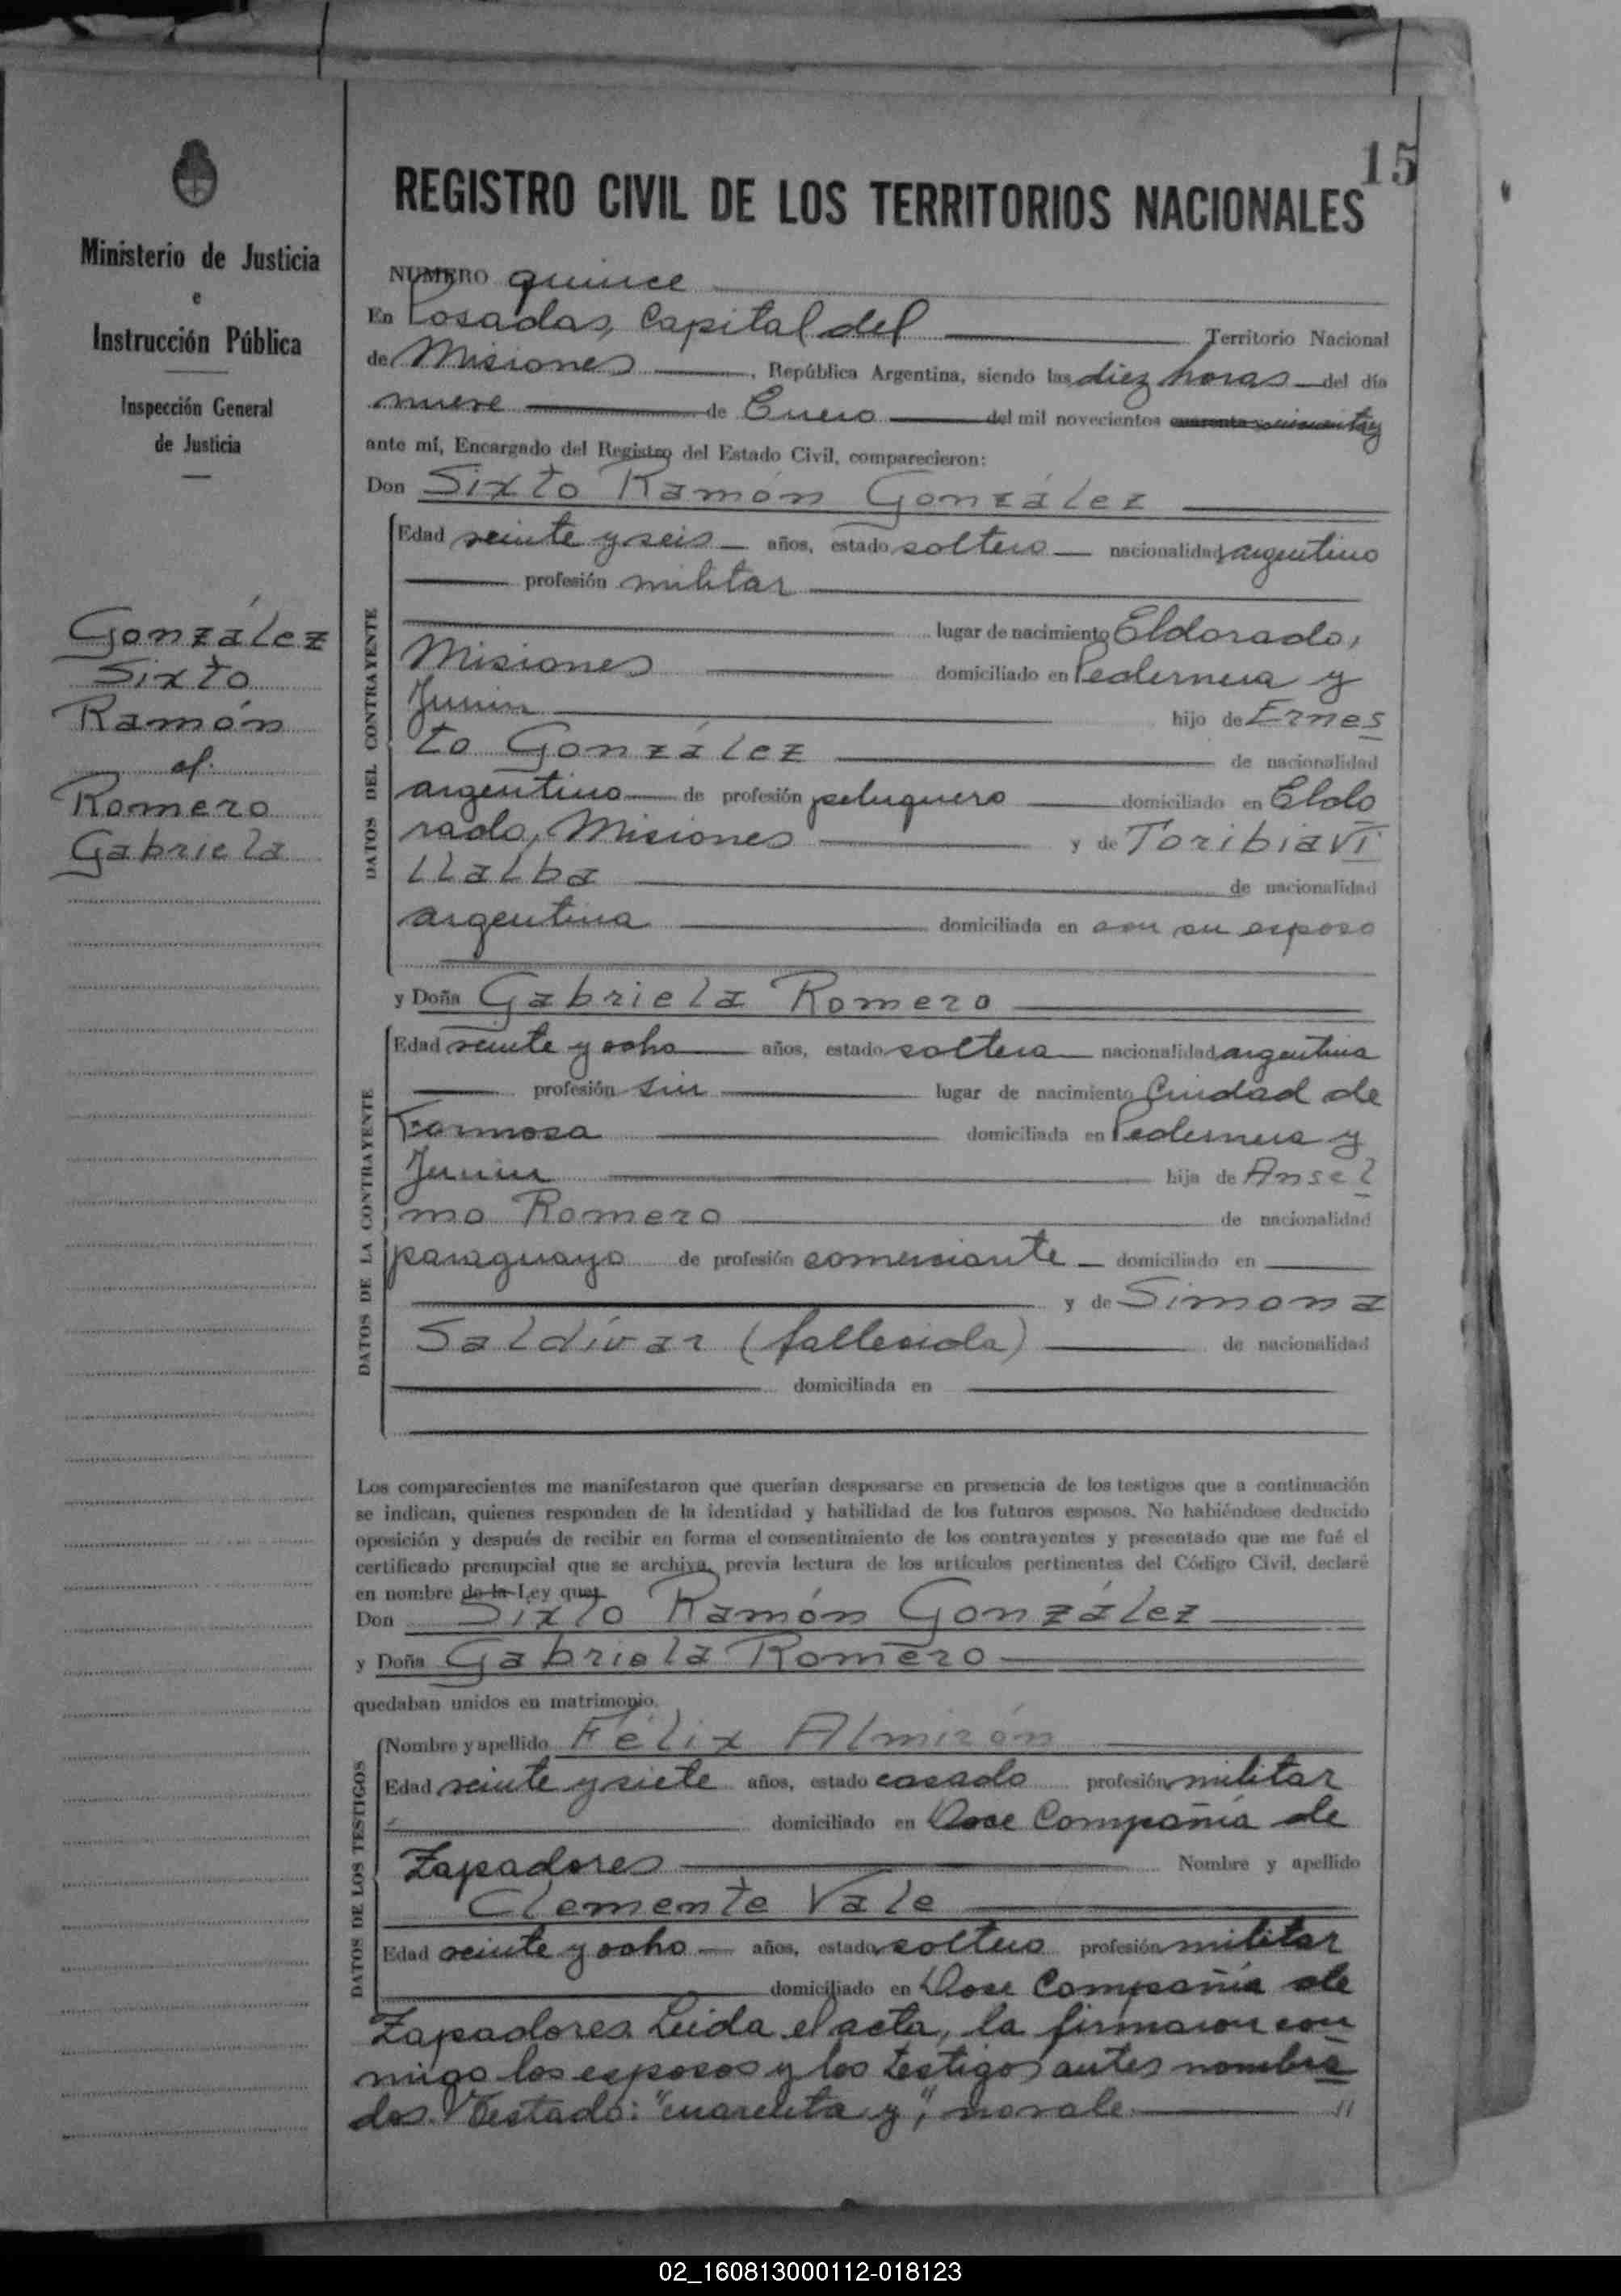 15
REGISTRO CIVIL DE LOS TERRITORIOS NACIONALES
Ministerio de Justicia
e
Instrucción Pública
Inspección General
de Justicia
González
Sixto
Ramón
c/.
Romero
Gabriela
NUMERO quince
En Posadas, Capital del Territorio Nacional
de Misiones, República Argentina, siendo las diez horas del día
nueve de Enero del mil novecientos cuarenta y
ante mí, Encargado del Registro del Estado Civil, comparecieron:
Don Sixto Ramón González
DATOS DEL CONTRAYENTE
Edad veinte y seis años, estado soltero nacionalidad argentino
profesión militar
lugar de nacimiento Eldorado,
Misiones domiciliado en Pedernera y
Junin hijo de Ernes
to González de nacionalidad
argentino de profesión peluquero domiciliado en Eldo
rado, Misiones y de Toribia Vi
llalba de nacionalidad
argentina domiciliada en con su esposo
y Doña Gabriela Romero
DATOS DE LA CONTRAYENTE
Edad veinte y ocho años, estado soltera nacionalidad argentina
profesión sin lugar de nacimiento Ciudad de
Formosa domiciliada en Pedernera y
Junin hija de Ansel
mo Romero de nacionalidad
paraguayo de profesión comerciante domiciliado en
y de Simona
Saldívar (fallecida) de nacionalidad
domiciliada en
Los comparecientes me manifestaron que querían desposarse en presencia de los testigos que a continuación
se indican, quienes responden de la identidad y habilidad de los futuros esposos. No habiéndose deducido
oposición y después de recibir en forma el consentimiento de los contrayentes y presentado que me fué el
certificado prenupcial que se archiva, previa lectura de los artículos pertinentes del Código Civil, declaré
en nombre de la Ley que:
Don Sixto Ramón González
y Doña Gabriela Romero
quedaban unidos en matrimonio.
DATOS DE LOS TESTIGOS
Nombre y apellido Félix Almirón
Edad veinte y siete años, estado casado profesión militar
domiciliado en Doce Compañía de
Zapadores Nombre y apellido
Clemente Vale
Edad veinte y ocho años, estado soltero profesión militar
domiciliado en Doce Compañia de
Zapadores. Leida el acta, la firmaron con
migo los esposos y los testigos antes nombra
dos. Testado: "cuarenta y", no vale. //
02_160813000112-018123